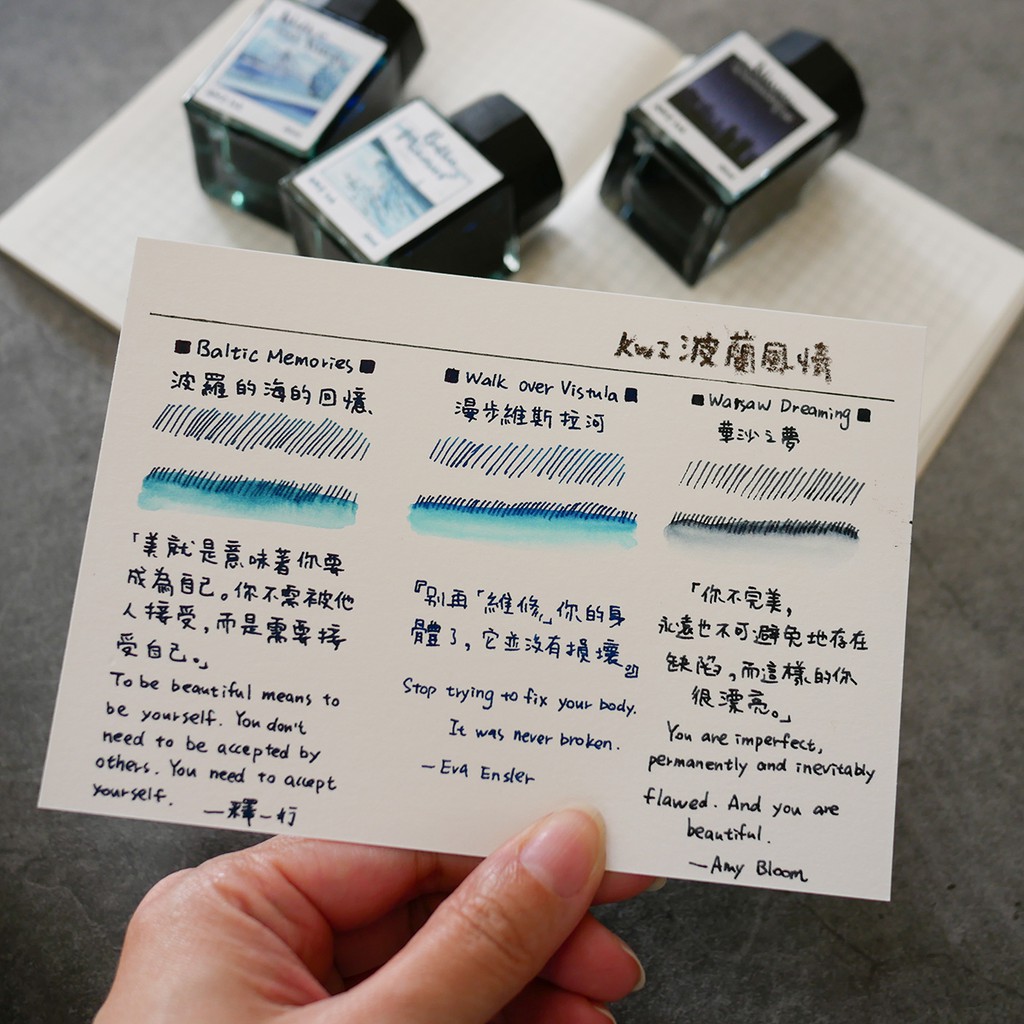 Baltic
Memories
KWZ 波蘭風情
■ Baltic Memories ■
波羅的海的回憶
「美就是意味著你要
成為自己。你不需被他
人接受，而是需要接
受自己。」
To be beautiful means to
be yourself. You don't
need to be accepted by
others. You need to accept
yourself.
—釋一行
■ Walk over Vistula ■
漫步維斯拉河
『別再「維修」你的身
體了，它並沒有損壞。』
Stop trying to fix your body.
It was never broken.
—Eva Ensler
■ Warsaw Dreaming ■
華沙之夢
「你不完美，
永遠也不可避免地存在
缺陷，而這樣的你
很漂亮。」
You are imperfect,
permanently and inevitably
flawed. And you are
beautiful.
—Amy Bloom